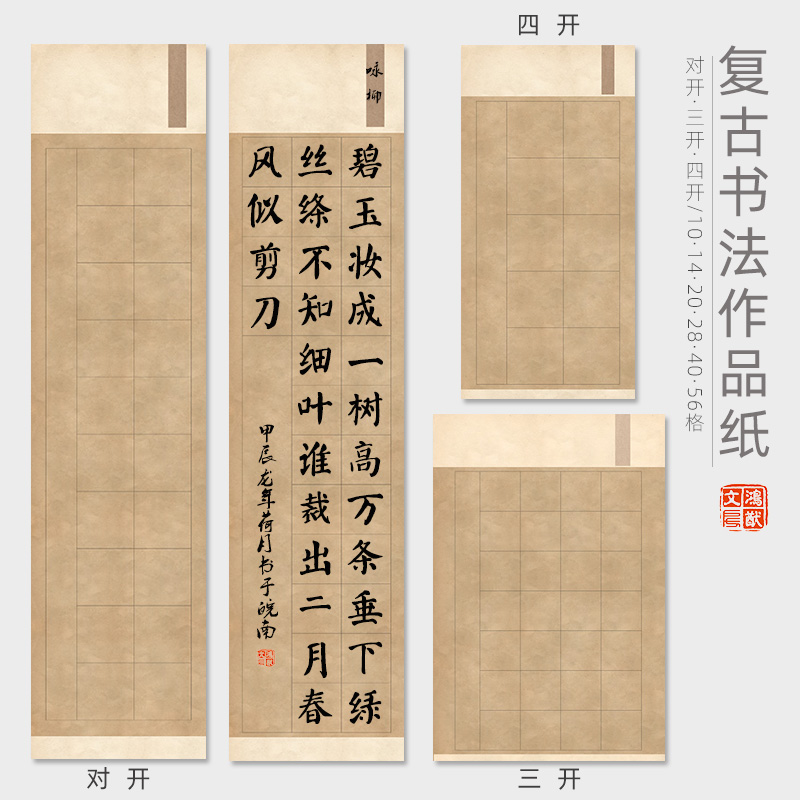 复古书法作品纸
对开·三开·四开/10·14·20·28·40·56格
鸿猷
文
四开
咏柳
碧玉妆成一树高万条垂下绿
丝绦不知细叶谁裁出二月春
风似剪刀
甲辰龙年荷月书于皖南
对开
三开